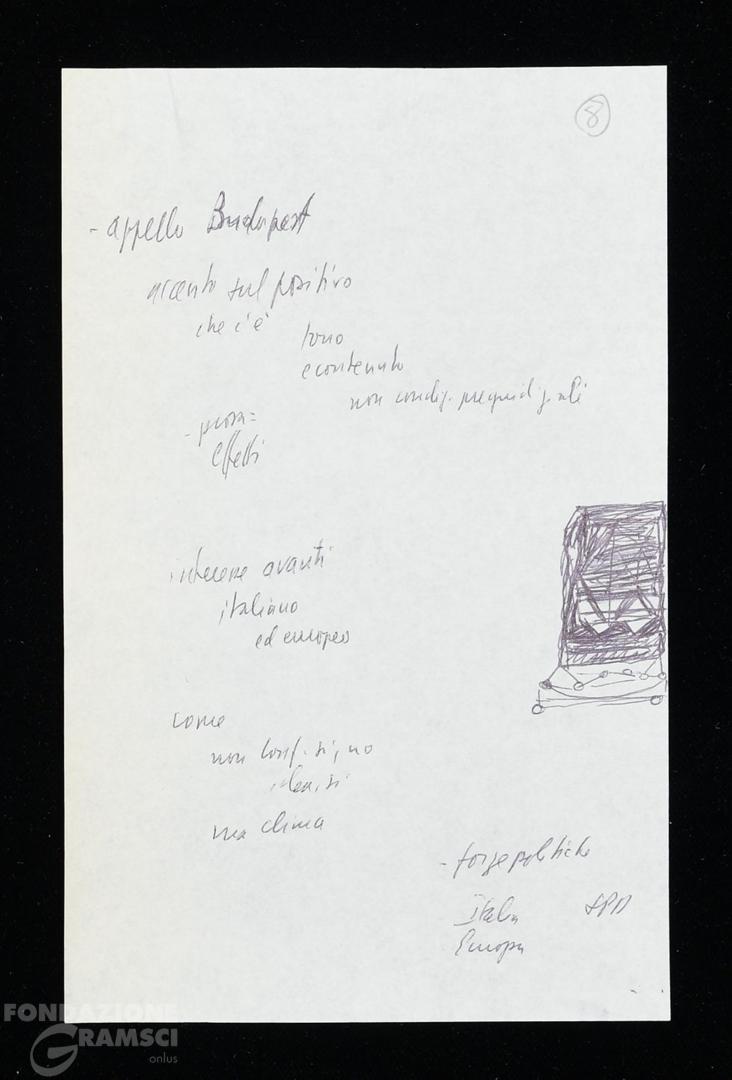 8
- appello Budapest
accento sul positivo
che c'è
tono
e contenuto
non condiz. pregiudiziali
effetti
avanti
italiano
ed europeo
come
non conf. si, no
ma clima
- forze politiche
Italia SPD
Europa
FONDAZIONE
GRAMSCI
onlus